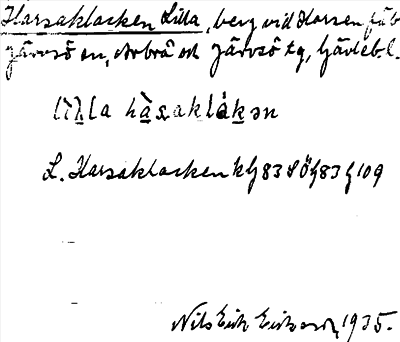 Harsaklacken Lilla, berg vid Harsen fäb
Järvsö sn, Arbrå och Järvsö tg, Gävleb. l.
lìlla hàsaklàkən
L. Harsaklacken kbl 83 SÖ
Nils Erik Eriksson, 1935.